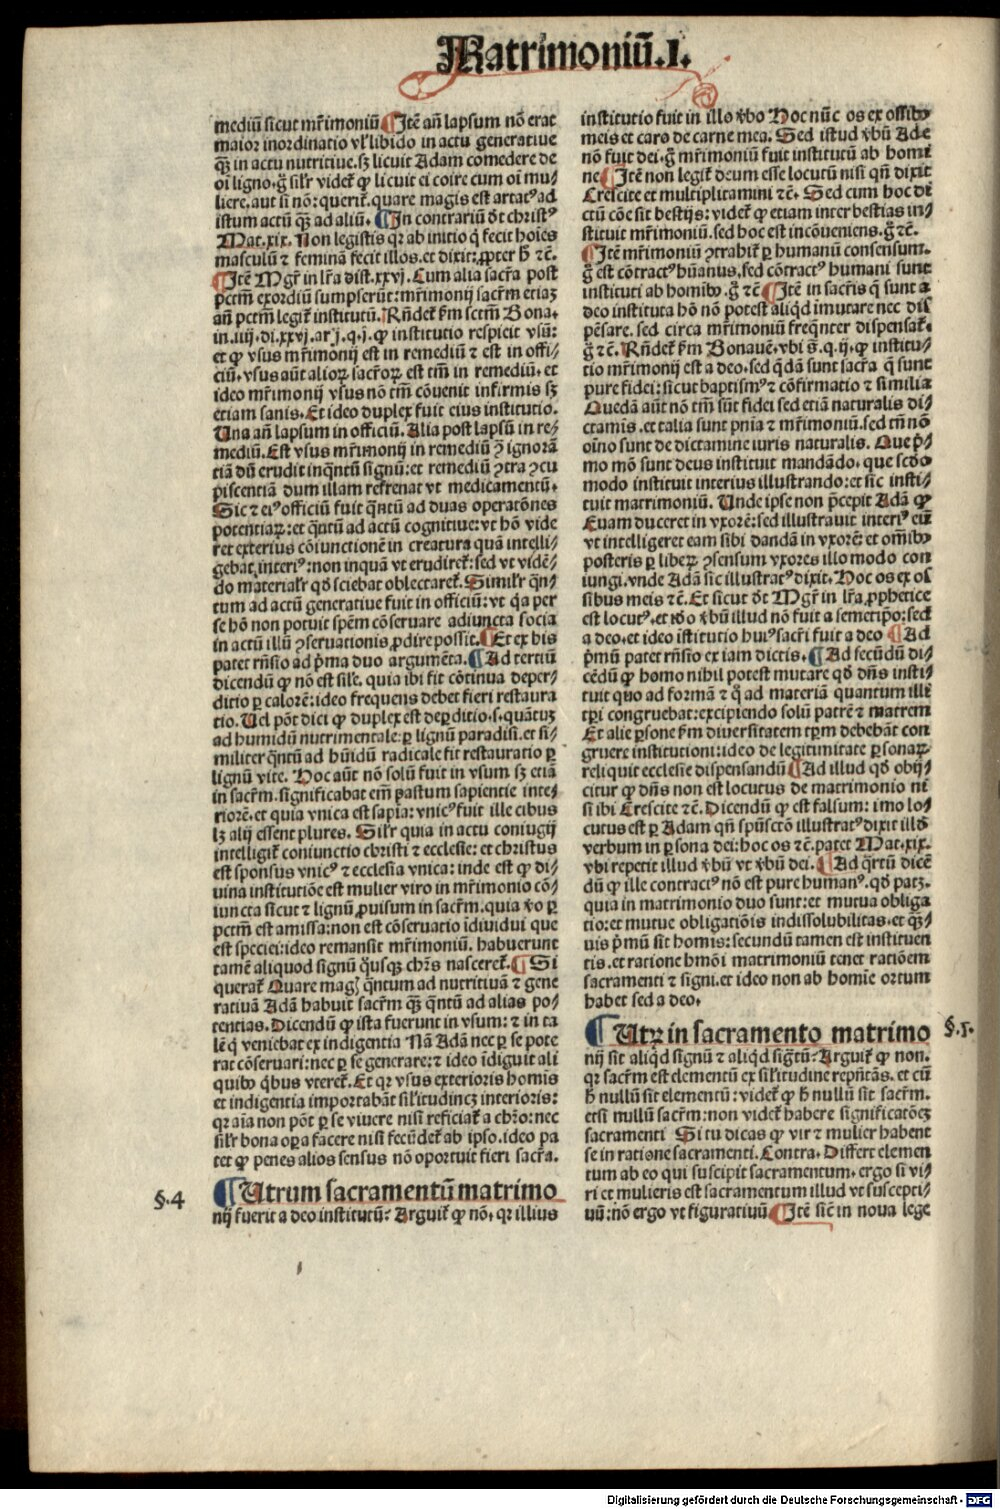 Matrimoniū.I.
mediū sicut mr̄imoniū ¶Itē añ lapsum nō erat
maior inordinatio vl' libido in actu generatiue
q̄ʒ in actu nutritiue. sʒ licuit Adam comedere de
oī ligno. g̊ silr̄ videt̄ ꝙ licuit ei coire cum oī mu/
liere. aut si nō: querit̄. quare magis est artatꝰ ad
istum actū q̄ʒ ad aliū. ¶In contrariū d̄t christꝰ
Mat.xix. Non legistis qꝛ ab initio q̇ fecit hoīes
masculū ⁊ feminā fecit illos. et dixit: ꝓpter h̄ ⁊c̄.
¶Itē Mgr̄ in lr̄a dist.xxvj. Cum alia sacr̄a post
pctm̄ exordiū sumpserūt: mr̄imonij sacr̄m etiaʒ
añ pctm̄ legit̄ institutū. Rñdet̄ ẜm sctm̄ Bona.
in.iiij.di.xxvj.ar̄.j.q.j. ꝙ institutio respicit vsū:
et ꝙ vsus mr̄imonij est in remediū ⁊ est in offi/
ciū. vsus aūt alioꝝ sacr̄oꝝ est tm̄ in remediū. et
ideo mr̄imonij vsus nō tm̄ cōuenit infirmis sʒ
etiam sanis. Et ideo duplex fuit eius institutio.
Una añ lapsum in officiū. Alia post lapsū in re/
mediū. Est vsus mr̄imonij in remediū ꝯ̄ ignorā
tiā dū erudit inq̄ntū signū: et remediū ꝯtra ꝯcu
piscentiā dum illam refrenat vt medicamentū.
Sic ⁊ eiꝰ officiū fuit q̄ntū ad duas operatōnes
potentiaꝝ: et q̄ntū ad actū cognitiue: vt hō vide
ret exterius cōiunctionē in creatura quā intelli/
gebat interiꝰ: non inquā vt erudiret̄: sed vt vidē/
do materialr̄ qd̄ sciebat oblectaret̄. Similr̄ q̄n/
tum ad actū generatiue fuit in officiū: vt q̇a per
se hō non potuit spēm cōseruare adiuncta socia
in actū illū ꝯseruationis ꝓdire possit. ¶Et ex his
patet rn̄sio ad p̄ma duo argumēta. ¶Ad tertiū
dicendū ꝙ nō est sil'e. quia ibi fit cōtinua deper/
ditio ꝑ calorē: ideo frequens debet fieri restaura
tio. Uel pōt dici ꝙ duplex est deꝑditio. s. quātuʒ
ad humidū nutrimentale: ꝑ lignū paradisi. et si/
militer q̄ntū ad hūidū radicale fit restauratio ꝑ
lignū vite. Hoc aūt nō solū fuit in vsum sʒ etiā
in sacr̄m. significabat em̄ pastum sapientie inte/
riorē. et quia vnica est sapīa: vnicꝰ fuit ille cibus
lʒ alij essent plures. Silr̄ quia in actu coniugij
intelligit̄ coniunctio christi ⁊ ecclesie: et christus
est sponsus vnicꝰ ⁊ ecclesia vnica: inde est ꝙ di/
uina institutiōe est mulier viro in mr̄imonio cō/
iuncta sicut ⁊ lignū ꝓuisum in sacr̄m. quia v̄o ꝑ
pctm̄ est amissa: non est cōseruatio īdiuidui que
est speciei: ideo remansit mr̄imoniū. habuerunt
tamē aliquod signū q̇usqʒ chr̄s nasceret̄. ¶Si
querat̄ Quare magʼ q̄ntum ad nutritiuā ⁊ gene
ratiuā Adā habuit sacr̄m q̄ʒ q̄ntū ad alias po/
tentias. Dicendū ꝙ ista fuerunt in vsum: ⁊ in ta
lē q̇ veniebat ex indigentia Nā Adā nec ꝑ se pote
rat cōseruari: nec ꝑ se generare: ⁊ ideo īdiguit ali
quibꝰ q̇bus vteret̄. Et qꝛ vsus exterioris homīs
et indigentia importabāt sil'itudineʒ interioris:
qꝛ aīa non pōt ꝑ se viuere nisi reficiat̄ a chr̄o: nec
silr̄ bona oꝑa facere nisi fecūdet̄ ab ipso. ideo pa
tet ꝙ penes alios sensus nō oportuit fieri sacr̄a.
§.4 ¶Utrum sacramentū matrimo
nij fuerit a deo institutū? Arguit̄ ꝙ nō. qꝛ illius
institutio fuit in illo v̄bo Hoc nūc os ex ossibꝰ
meis et caro de carne mea. Sed istud v̄bū Ade
nō fuit dei. g̊ mr̄imoniū fuit institutū ab homi
ne ¶Itē non legit̄ deum esse locutū nisi qn̄ dixit
Crescite et multiplicamini ⁊c̄. Sed cum hoc di
ctū cōe sit bestijs: videt̄ ꝙ etiam inter bestias in/
stituit mr̄imoniū. sed hoc est incōueniens. g̊ ⁊c̄.
¶Itē mr̄imoniū ꝯtrahit̄ ꝑ humanū consensum.
g̊ est cōtractꝰ hūanus, sed cōtractꝰ humani sunt
instituti ab homībꝰ. g̊ ⁊c̄ ¶Itē in sacr̄is q̄ sunt a
deo instituta hō nō potest aliq̇d īmutare nec dis
pēsare. sed circa mr̄imoniū freq̄nter dispensat̄.
g̊ ⁊c̄. Rñdet̄ ẜm Bonauē. vbi s̄. q.ij. ꝙ institu/
tio mr̄imonij est a deo. sed q̄dā sunt sacr̄a q̄ sunt
pure fidei: sicut baptismꝰ ⁊ cōfirmatio ⁊ similia
Quedā aūt nō tm̄ sūt fidei sed etiā naturalis di/
ctamīs. et talia sunt pnīa ⁊ mr̄imoniū. sed tn̄ nō
oīno sunt de dictamine iuris naturalis. Que p̄/
mo mō sunt deus instituit mandādo. que scd̄o
modo instituit interius illustrando: et sic insti/
tuit matrimoniū. Unde ipse non p̄cepit Adā ꝙ
Euam duceret in vxorē: sed illustrauit interiꝰ eū
vt intelligeret eam sibi dandā in vxorē: et om̄ibꝰ
posteris ꝑ liberꝝ ꝯsensum vxores illo modo con
iungi. vnde Adā sic illustratꝰ dixit. Hoc os ex os
sibus meis ⁊c̄. Et sicut d̄t Mgr̄ in lr̄a ꝓphetice
est locutꝰ. et iō v̄bū illud nō fuit a semetip̄o: sed
a deo. et ideo īstitutio huiꝰ sacr̄i fuit a deo ¶Ad
p̄mū patet rn̄sio ex iam dictis. ¶Ad secūdū di/
cēdū ꝙ homo nihil potest mutare qd̄ dn̄s insti/
tuit quo ad formā ⁊ q̄ ad materiā quantum illi
tp̄ri congruebat: excipiendo solū patrē ⁊ matrem
Et alie ꝑsone ẜm diuersitatem tꝑm debebāt con
gruere institutioni: ideo de legitimitate ꝑsonaꝝ
reliquit ecclesie dispensandū ¶Ad illud qd̄ obij/
citur ꝙ dn̄s non est locutus de matrimonio ni
si ibi Crescite ⁊c̄. Dicendū ꝙ est falsum: imo lo/
cutus est ꝑ Adam qn̄ spūsctō illustratꝰ dixit illd̄
verbum in ꝑsona dei: hoc os ⁊c̄. patet Mat.xix.
vbi repetit illud v̄bū vt v̄bū dei. ¶Ad q̄rtū dicē
dū ꝙ ille contractꝰ nō est pure humanꝰ. qd̄ patʒ.
quia in matrimonio duo sunt: et mutua obliga
tio: et mutue obligatiōis indissolubilitas. et q̄ʒ/
uis p̄mū sit homīs: secundū tamen est instituen
tis. et ratione hmōi matrimoniū tenet ratiōem
sacramenti ⁊ signi. et ideo non ab homīe ortum
habet sed a deo.
¶Utꝝ in sacramento matrimo §.5.
nij sit aliq̇d signū ⁊ aliq̇d sig̅tū? Arguit̄ ꝙ non.
qꝛ sacr̄m est elementū ex sil'itudine repn̄tās. et cū
h̄ nullū sit elementū: videt̄ ꝙ h̄ nullū sit sacr̄m.
etsi nullū sacr̄m: non videt̄ habere significatōeʒ
sacramenti Si tu dicas ꝙ vir ⁊ mulier habent
se in ratione sacramenti. Contra. Differt elemen
tum ab eo qui suscipit sacramentum. ergo si vi/
ri et mulieris est sacramentum illud vt suscepti/
uū: nō ergo vt figuratiuū ¶Itē sic̄ in noua lege
Digitalisierung gefördert durch die Deutsche Forschungsgemeinschaft - DFG